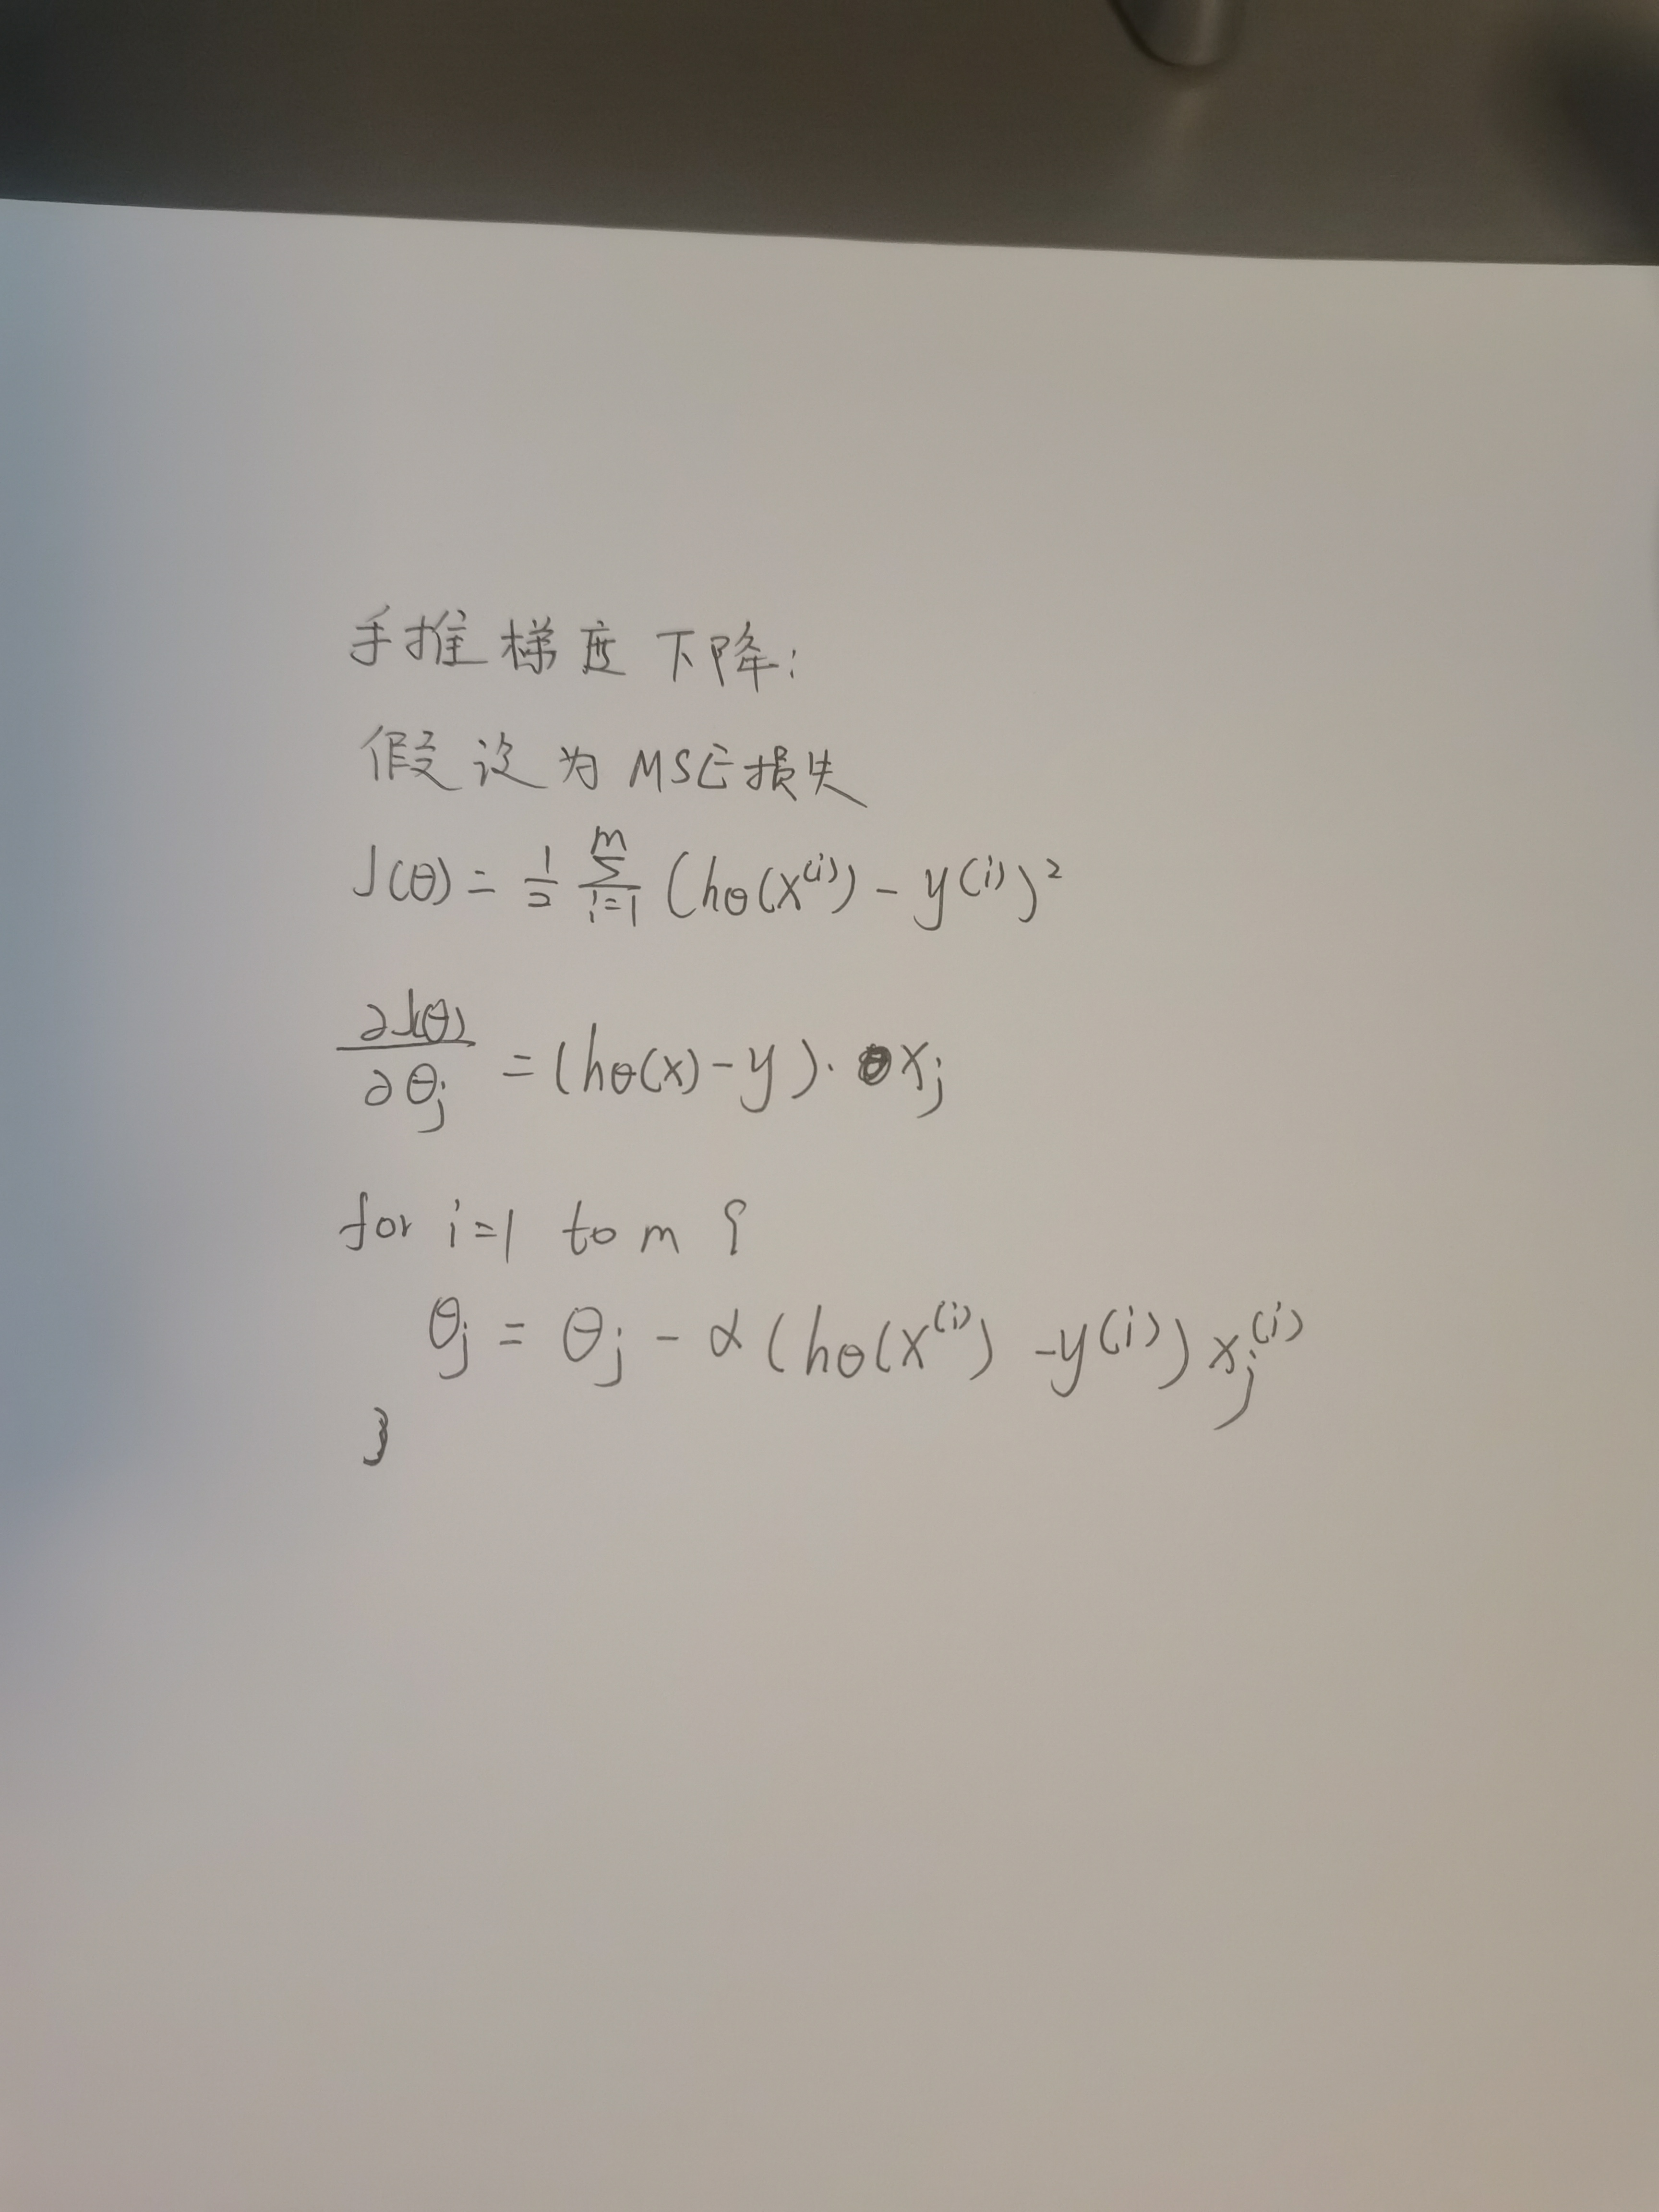 手推梯度下降:
假设为MSE损失
J(θ) = 1/2 Σ_{i=1}^{m} (hθ(x^(i)) - y^(i))²
∂J(θ)/∂θj = (hθ(x) - y)· xj
for i=1 to m {
θj = θj - α(hθ(x^(i)) - y^(i)) xj^(i)
}